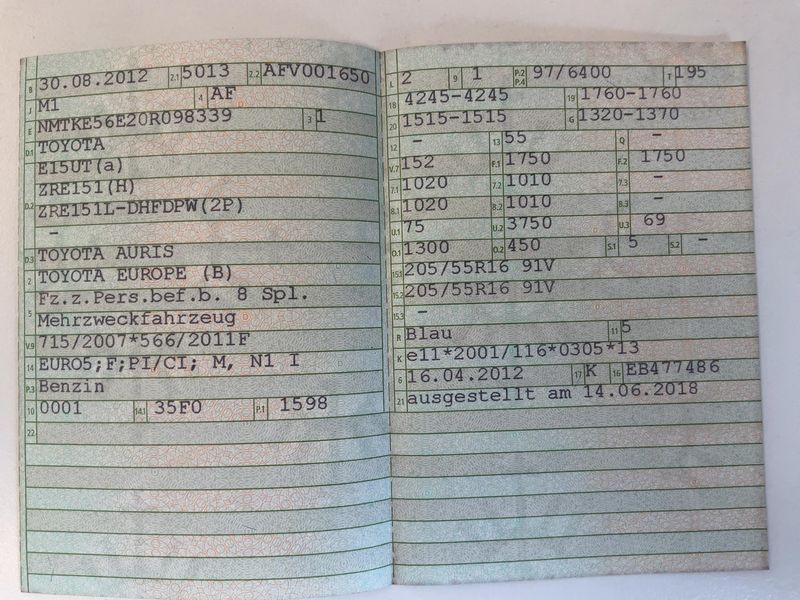 B 30.08.2012 2.1 5013 2.2 AFV001650
J M1 4 AF
E NMTKE56E20R098339 3 1
D.1 TOYOTA
E15UT(a)
ZRE151(H)
D.2 ZRE151L-DHFDPW(2P)
-
D.3 TOYOTA AURIS
2 TOYOTA EUROPE (B)
Fz.z.Pers.bef.b. 8 Spl.
5 Mehrzweckfahrzeug
V.9 715/2007*566/2011F
14 EURO5;F;PI/CI; M, N1 I
P.3 Benzin
10 0001 14.1 35F0 P.1 1598
22
L 2 9 1 P.2 P.4 97/6400 T 195
18 4245-4245 19 1760-1760
20 1515-1515 G 1320-1370
12 - 13 55 Q -
V.7 152 F.1 1750 F.2 1750
7.1 1020 7.2 1010 7.3 -
8.1 1020 8.2 1010 8.3 -
U.1 75 U.2 3750 U.3 69
O.1 1300 O.2 450 S.1 5 S.2 -
15.1 205/55R16 91V
15.2 205/55R16 91V
15.3 -
R Blau 11 5
K e11*2001/116*0305*13
6 16.04.2012 17 K 16 EB477486
21 ausgestellt am 14.06.2018